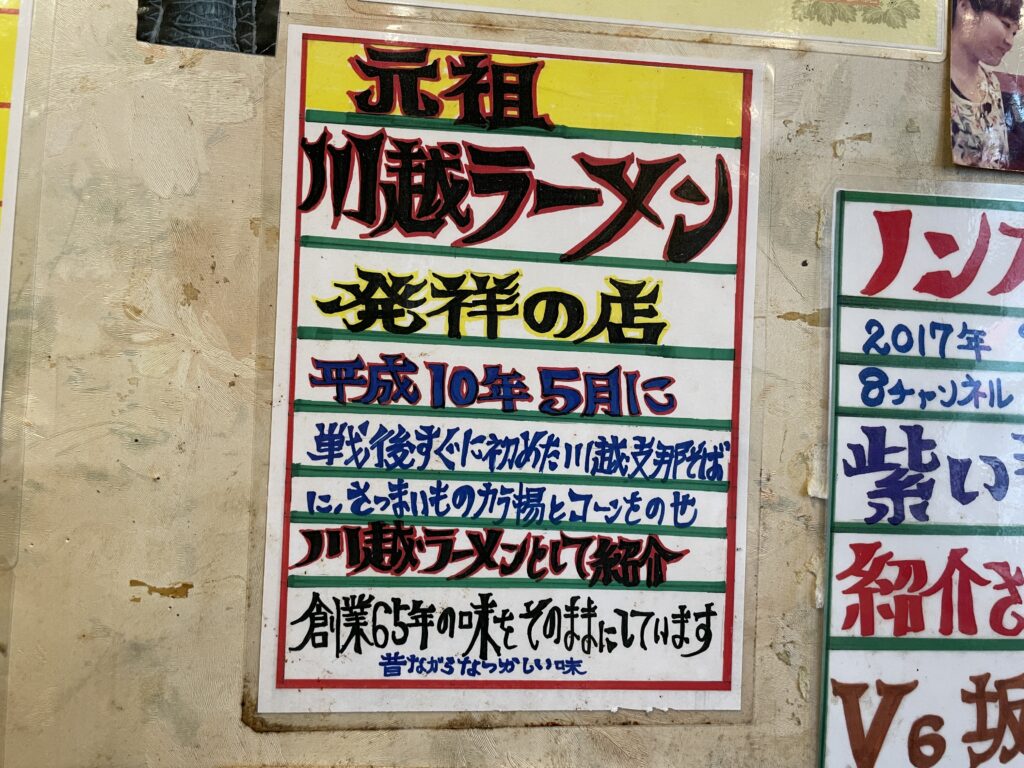 元祖
川越ラーメン
発祥の店
平成10年5月に
戦後すぐに初めた川越支那そば
に、さつまいものカラ揚とコーンをのせ
川越ラーメンとして紹介
創業65年の味をそのままにしています
昔ながらなつかしい味
ノンフ
2017年
8チャンネル
紫い
紹介さ
V6坂